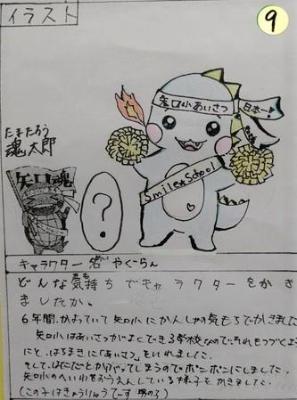 イラスト
9
矢口小あいさつ 日本一!
たまたろう
魂太郎
矢口魂
?
Smile★School
キャラクター名 やぐらん
どんな気持ちでキャラクターをかき
ましたか。
6年間、かよっていて矢口小にかんしゃの気もちでかきました。
矢口小はあいさつがよくできる学校なのでそれをもっとよくするこ
とと、はちまきに「あいさつ」をいれました。
そして、はただと
かってしまうのでポンポンにしました。
矢口小の
をおうえんしている様子をかきました。
(この子はきょうりゅうでーす 男の子)